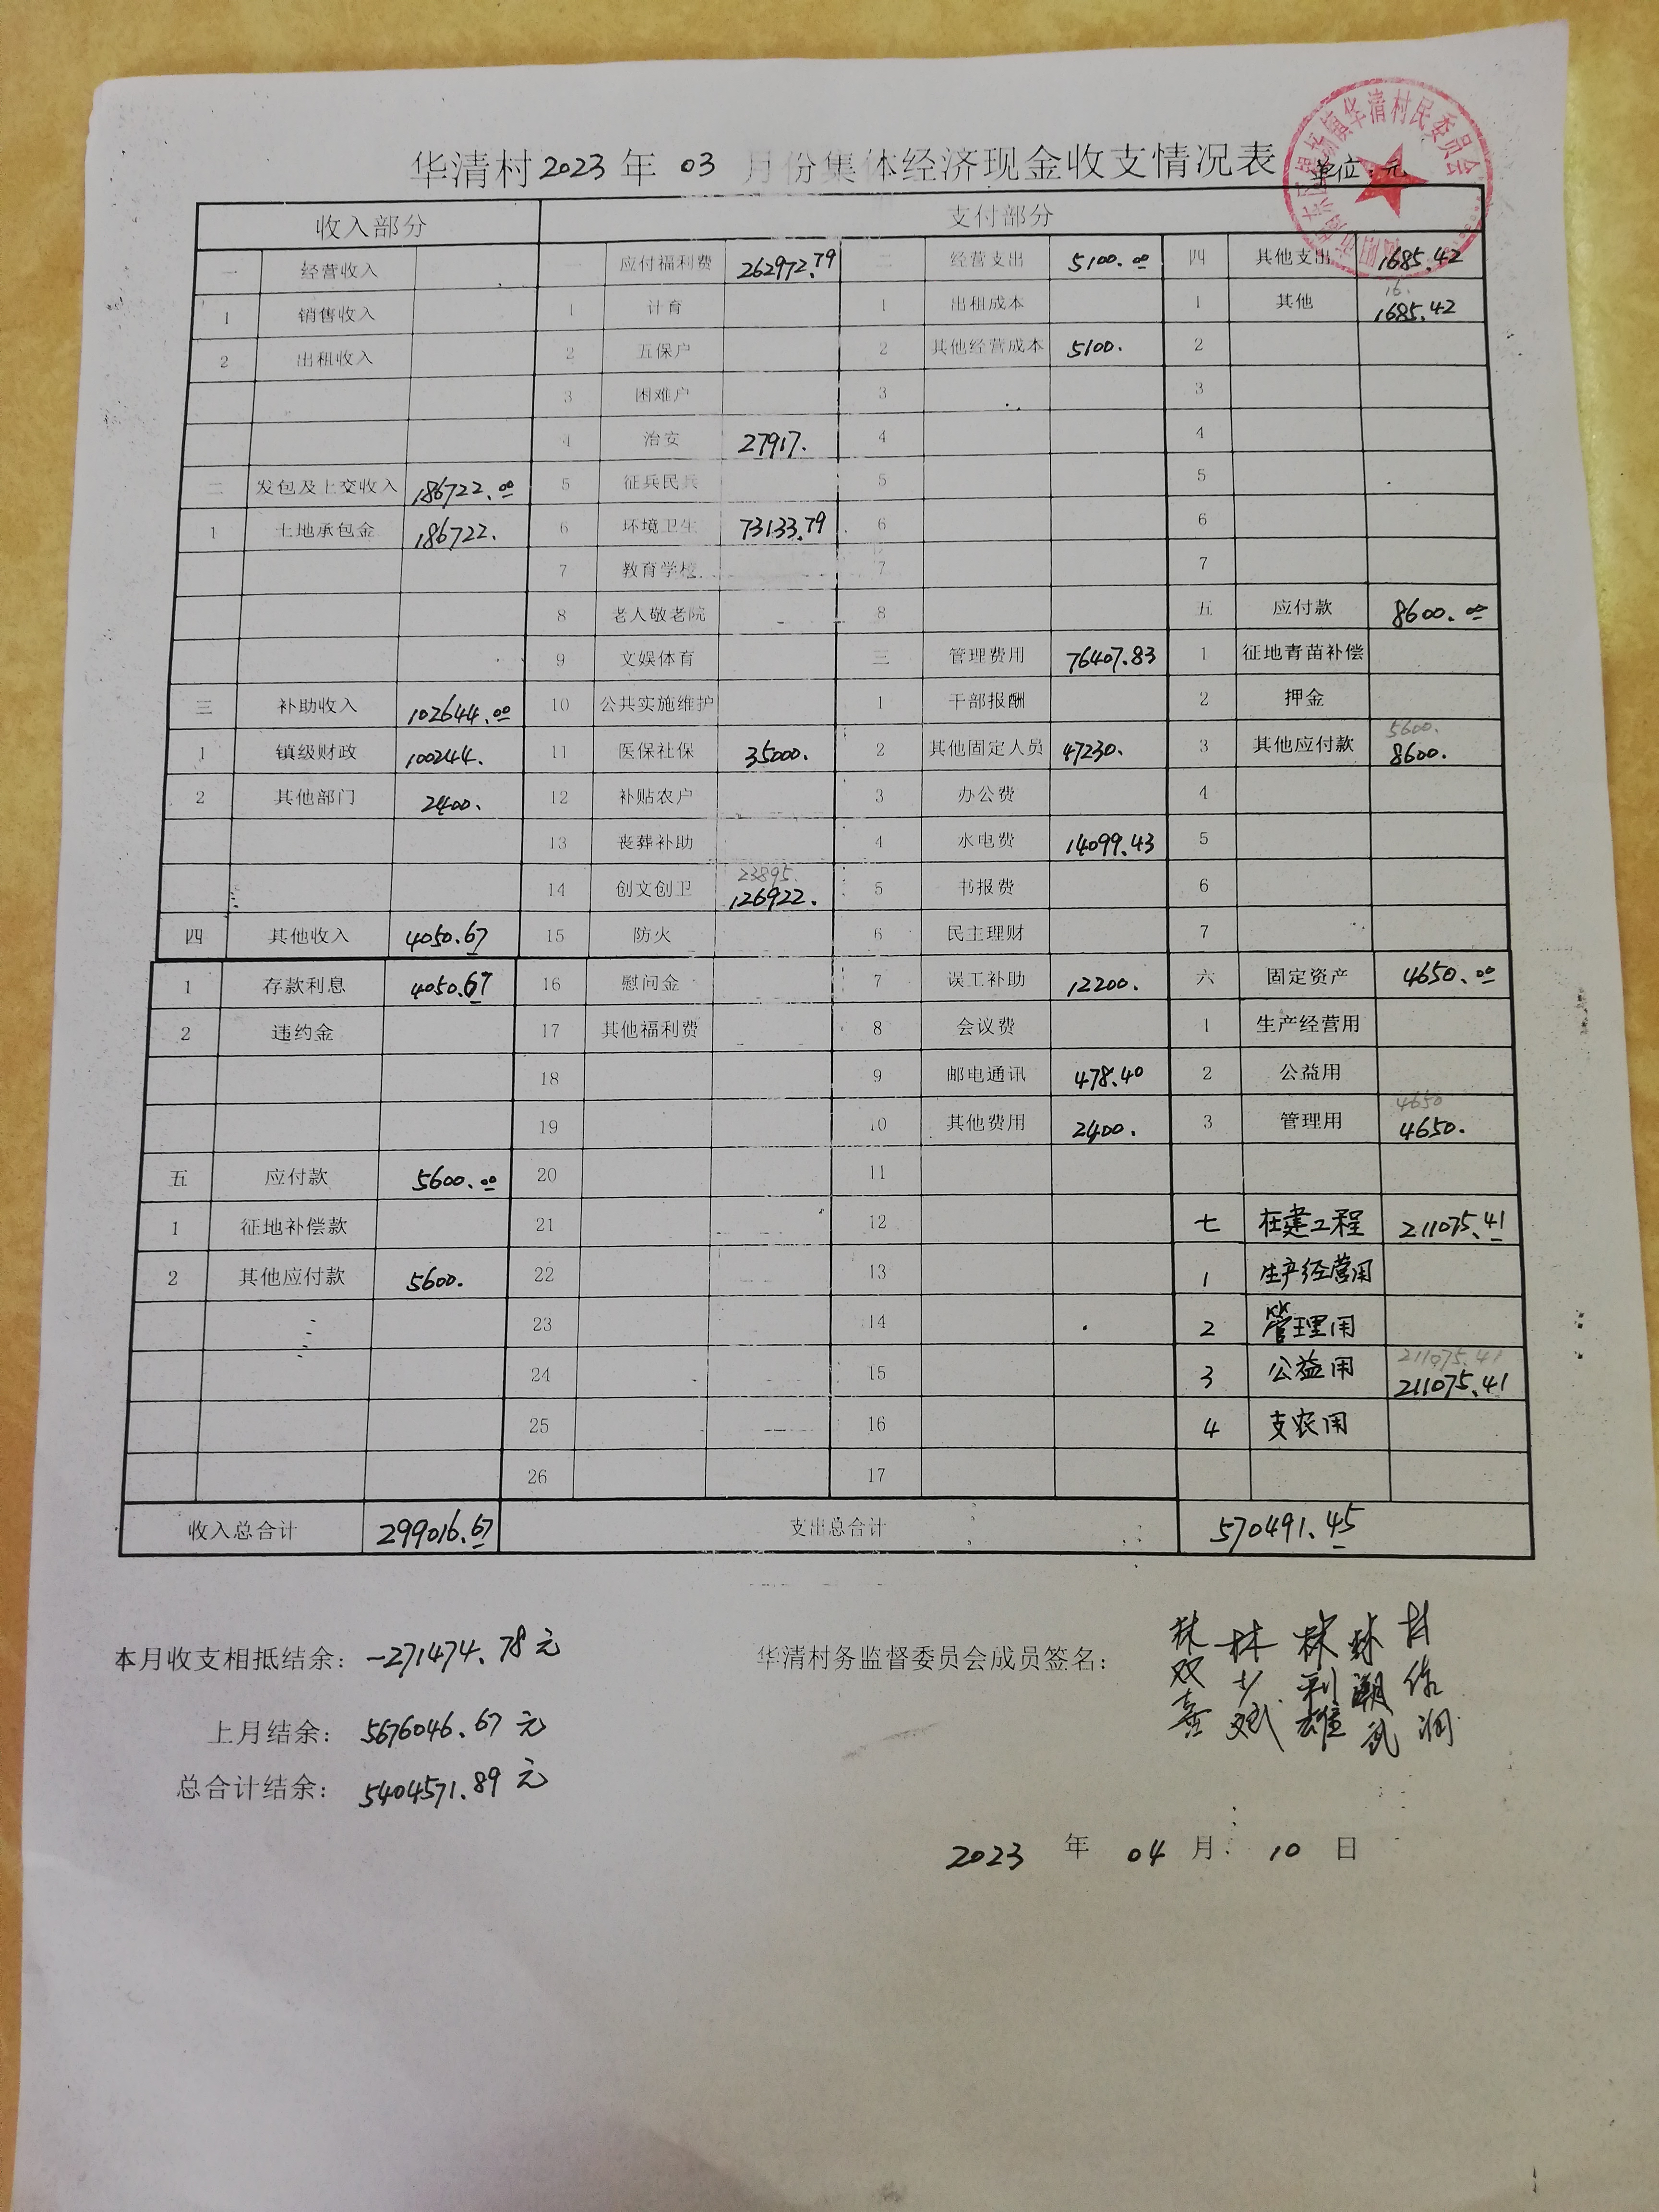 华清村2023年03月份集体经济现金收支情况表 单位:元
收入部分 支付部分
一 经营收入 一 应付福利费 262972.79 二 经营支出 5100.00 四 其他支出 1685.42
1 销售收入 1 计育 1 出租成本 1 其他 16. 1685.42
2 出租收入 2 五保户 2 其他经营成本 5100. 2
3 困难户 3 3
4 治安 27917. 4 4
二 发包及上交收入 186722.00 5 征兵民兵 5 5
1 土地承包金 186722. 6 环境卫生 73133.79 6 6
7 教育学校 7 7
8 老人敬老院 8 五 应付款 8600.00
9 文娱体育 三 管理费用 76407.83 1 征地青苗补偿
三 补助收入 102644.00 10 公共实施维护 1 干部报酬 2 押金
1 镇级财政 100244. 11 医保社保 35000. 2 其他固定人员 47230. 3 其他应付款 5600. 8600.
2 其他部门 2400. 12 补贴农户 3 办公费 4
13 丧葬补助 4 水电费 14099.43 5
14 创文创卫 23895. 126922. 5 书报费 6
四 其他收入 4050.67 15 防火 6 民主理财 7
1 存款利息 4050.67 16 慰问金 7 误工补助 12200. 六 固定资产 4650.00
2 违约金 17 其他福利费 8 会议费 1 生产经营用
18 9 邮电通讯 478.40 2 公益用
19 10 其他费用 2400. 3 管理用 4650 4650.
五 应付款 5600.00 20 11
1 征地补偿款 21 12 七 在建工程 211075.41
2 其他应付款 5600. 22 13 1 生产经营用
23 14 2 管理用
24 15 3 公益用 211075.41 211075.41
25 16 4 支农用
26 17
收入总合计 299016.67 支出总合计 570491.45
本月收支相抵结余: -271474.78元 华清村务监督委员会成员签名:
林双喜 林少斌 林利雄
上月结余: 5676046.67元
总合计结余: 5404571.89元
2023年04月10日
华清村民委员会